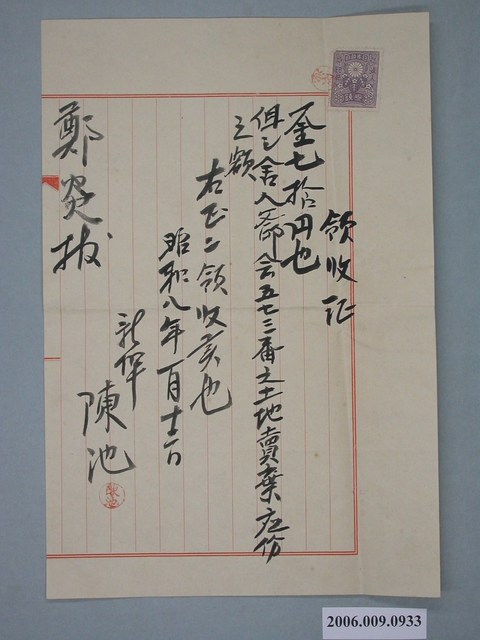 領收証
一金七拾円也
但シ舍人部会五七三番之土地賣棄应份
之額
右正ニ領收候也
昭和八年一月十一日
新岸
陳池
鄭安拔
2006.009.0933